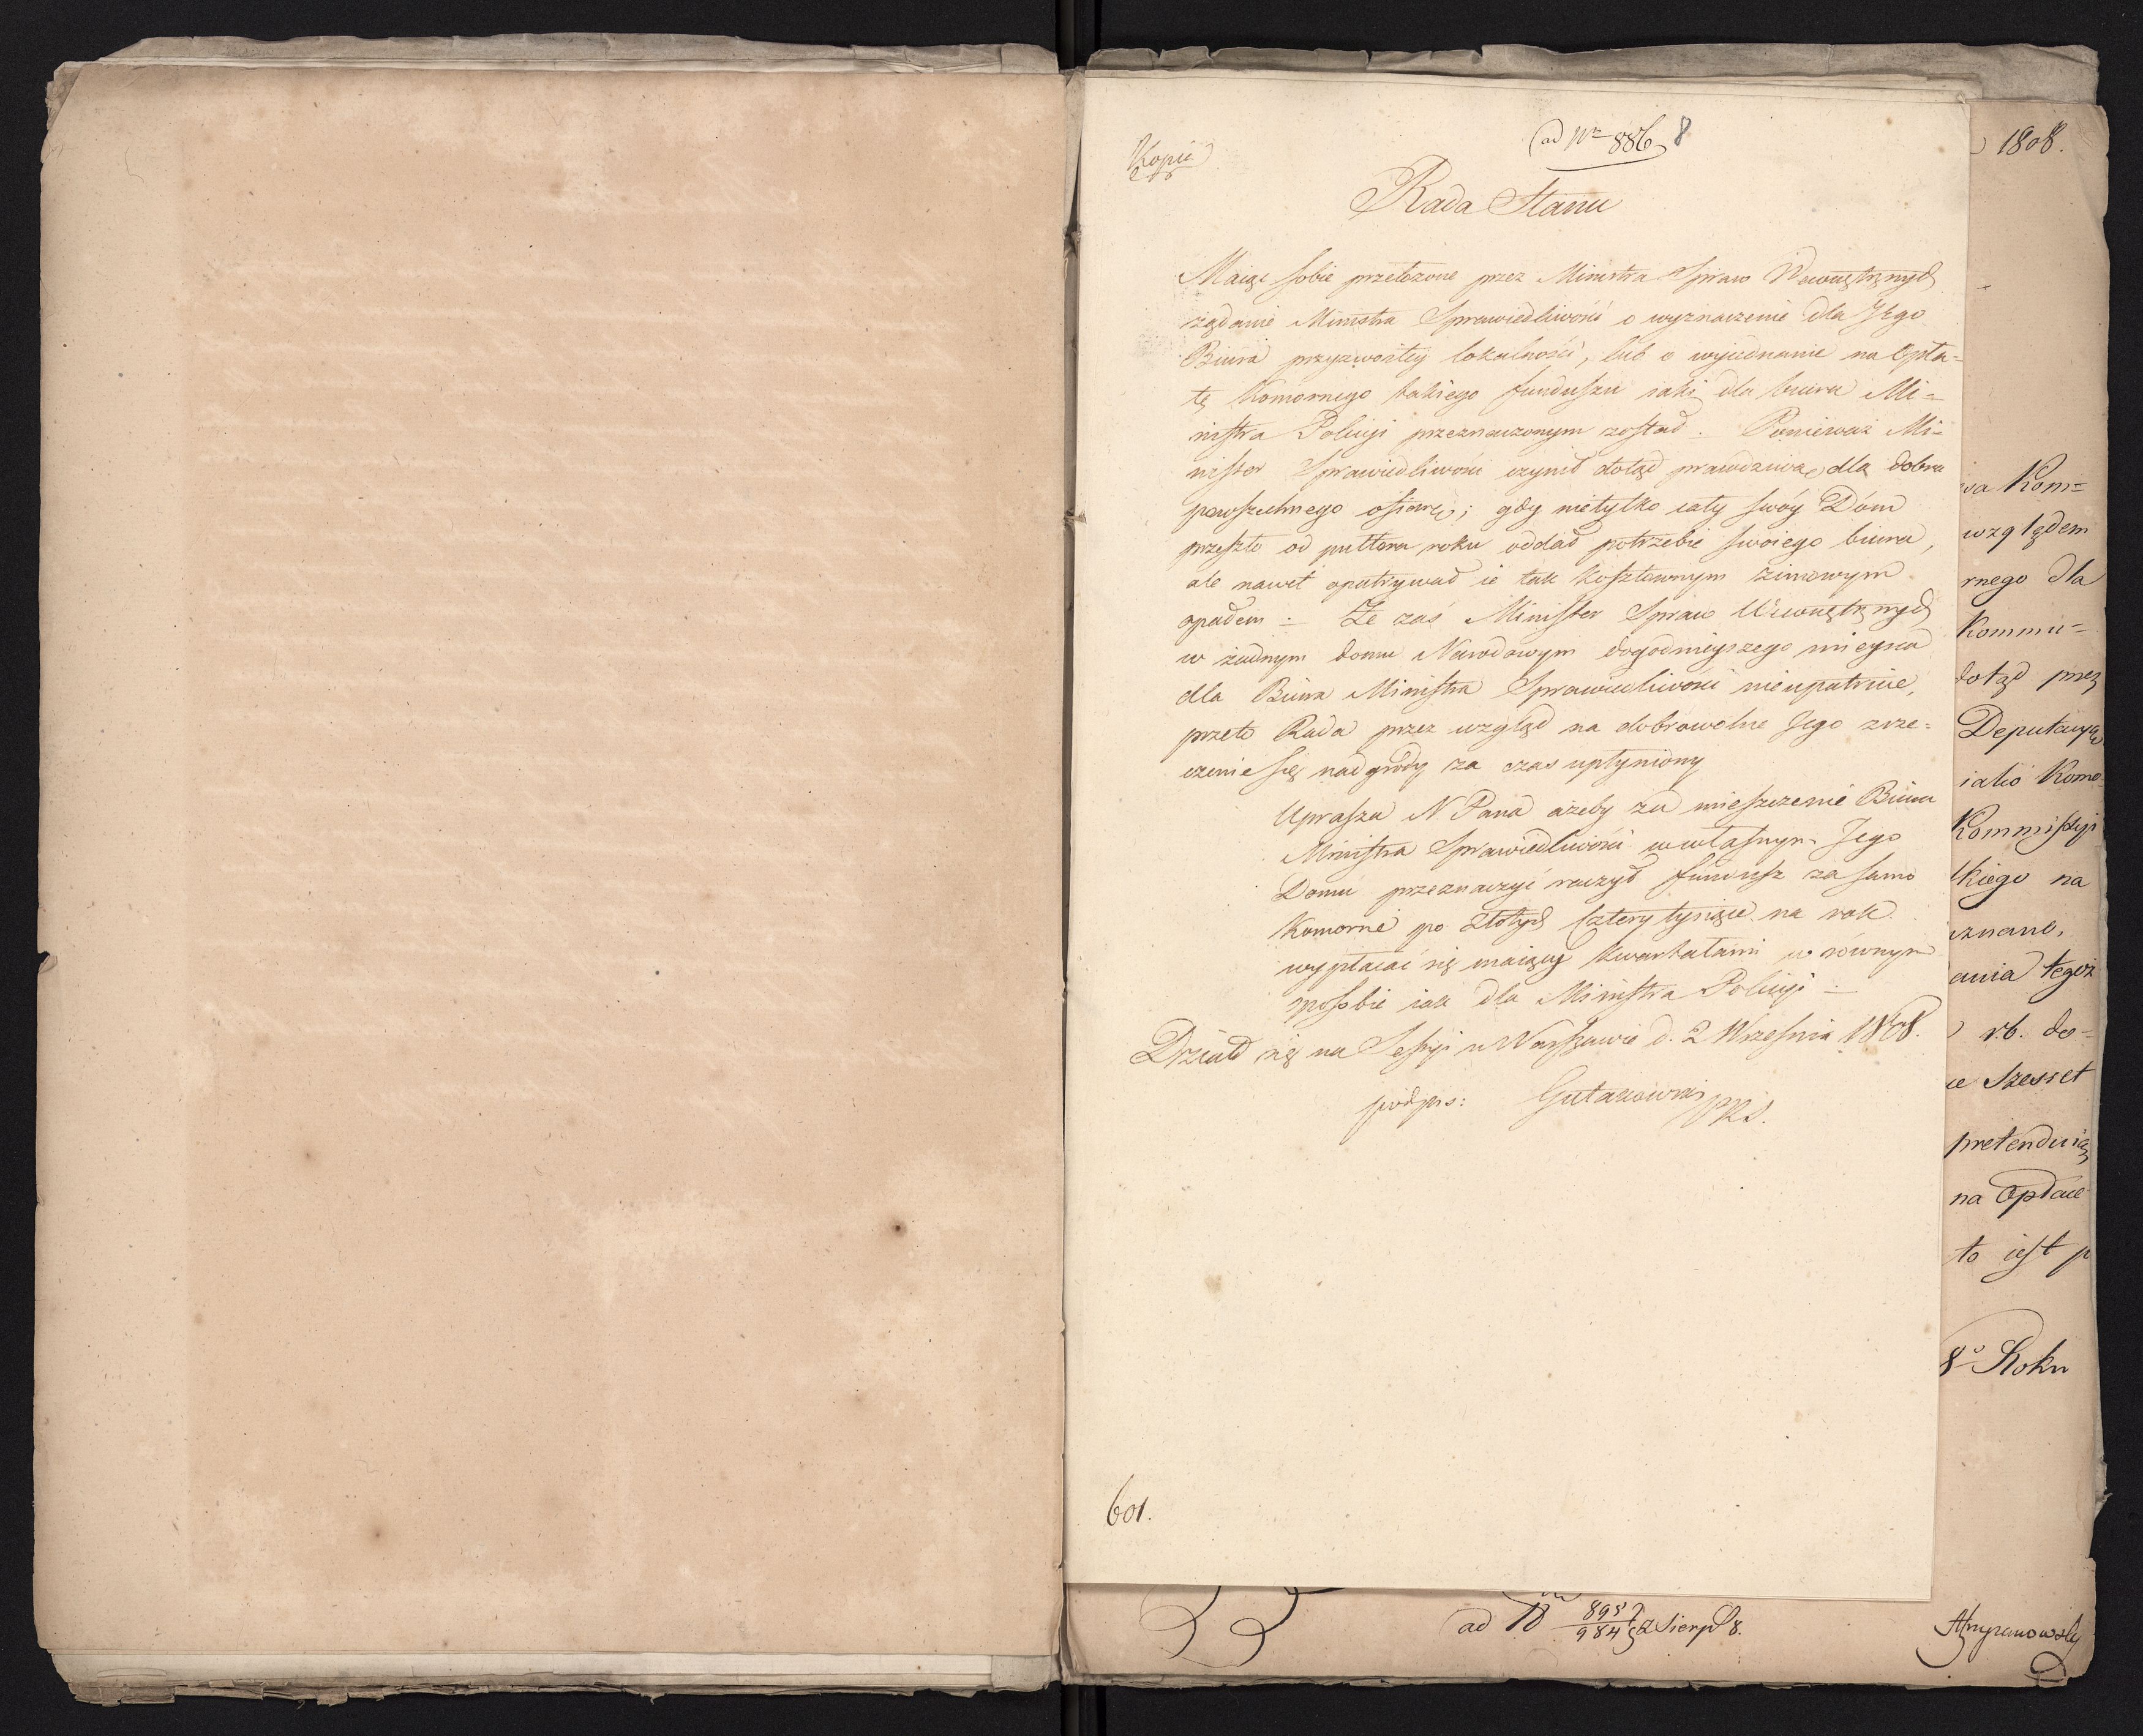 Kopia
ad Nr 886 8
Rada Stanu
Maiąc sobie przełożone przez Ministra Spraw Wewnętrznych
żądanie Ministra Sprawiedliwości o wyznaczenie dla Jego
Biura przyzwoitey lokalności, lub o wyiednanie na Opła=
tę Komornego takiego funduszu iaki dla biura Mi=
nistra Policyi przeznaczonym został. Ponieważ Mi=
nister Sprawiedliwości czynił dotąd prawdziwą dla dobra
powszechnego ofiarę; gdy nietylko cały swóy Dóm
przeszło od pułtora roku oddał potrzebie swoiego biura,
ale nawet opatrywał ie tak kosztownym zimowym
opałem : Że zaś Minister Spraw Wewnętrznych
w żadnym domu Narodowym dogodnieyszego mieysca
dla Biura Ministra Sprawiedliwości nieupatruie,
przeto Rada przez wzgląd na dobrowolne Jego zrze=
czenie się nadgrody za czas upłyniony
Uprasza N Pana ażeby za mieszczenie Biura
Ministra Sprawiedliwości w własnym Jego
Domu przeznaczyć raczył fundusz za samo
Komorne po Złotych Cztery tysiące na rok
wypłacać się maiący kwartałami w równym
sposobie iak dla Ministra Policyi
Działo się na Sessyi w Warszawie d. 2 Września 1808.
podpis: Gutakowski PRS.
601.
1808.
wa Kom=
względem
rnego dla
Kommi=
dotąd przez
Deputacyą
iakio Komo
Kommissyi
lkiego na
znano,
ania tegoż
r.b. do=
ie Szesset
pretenduią
na Opłacę
to iest p
8o Roku
ad N 895/984 2 Sierp 8.